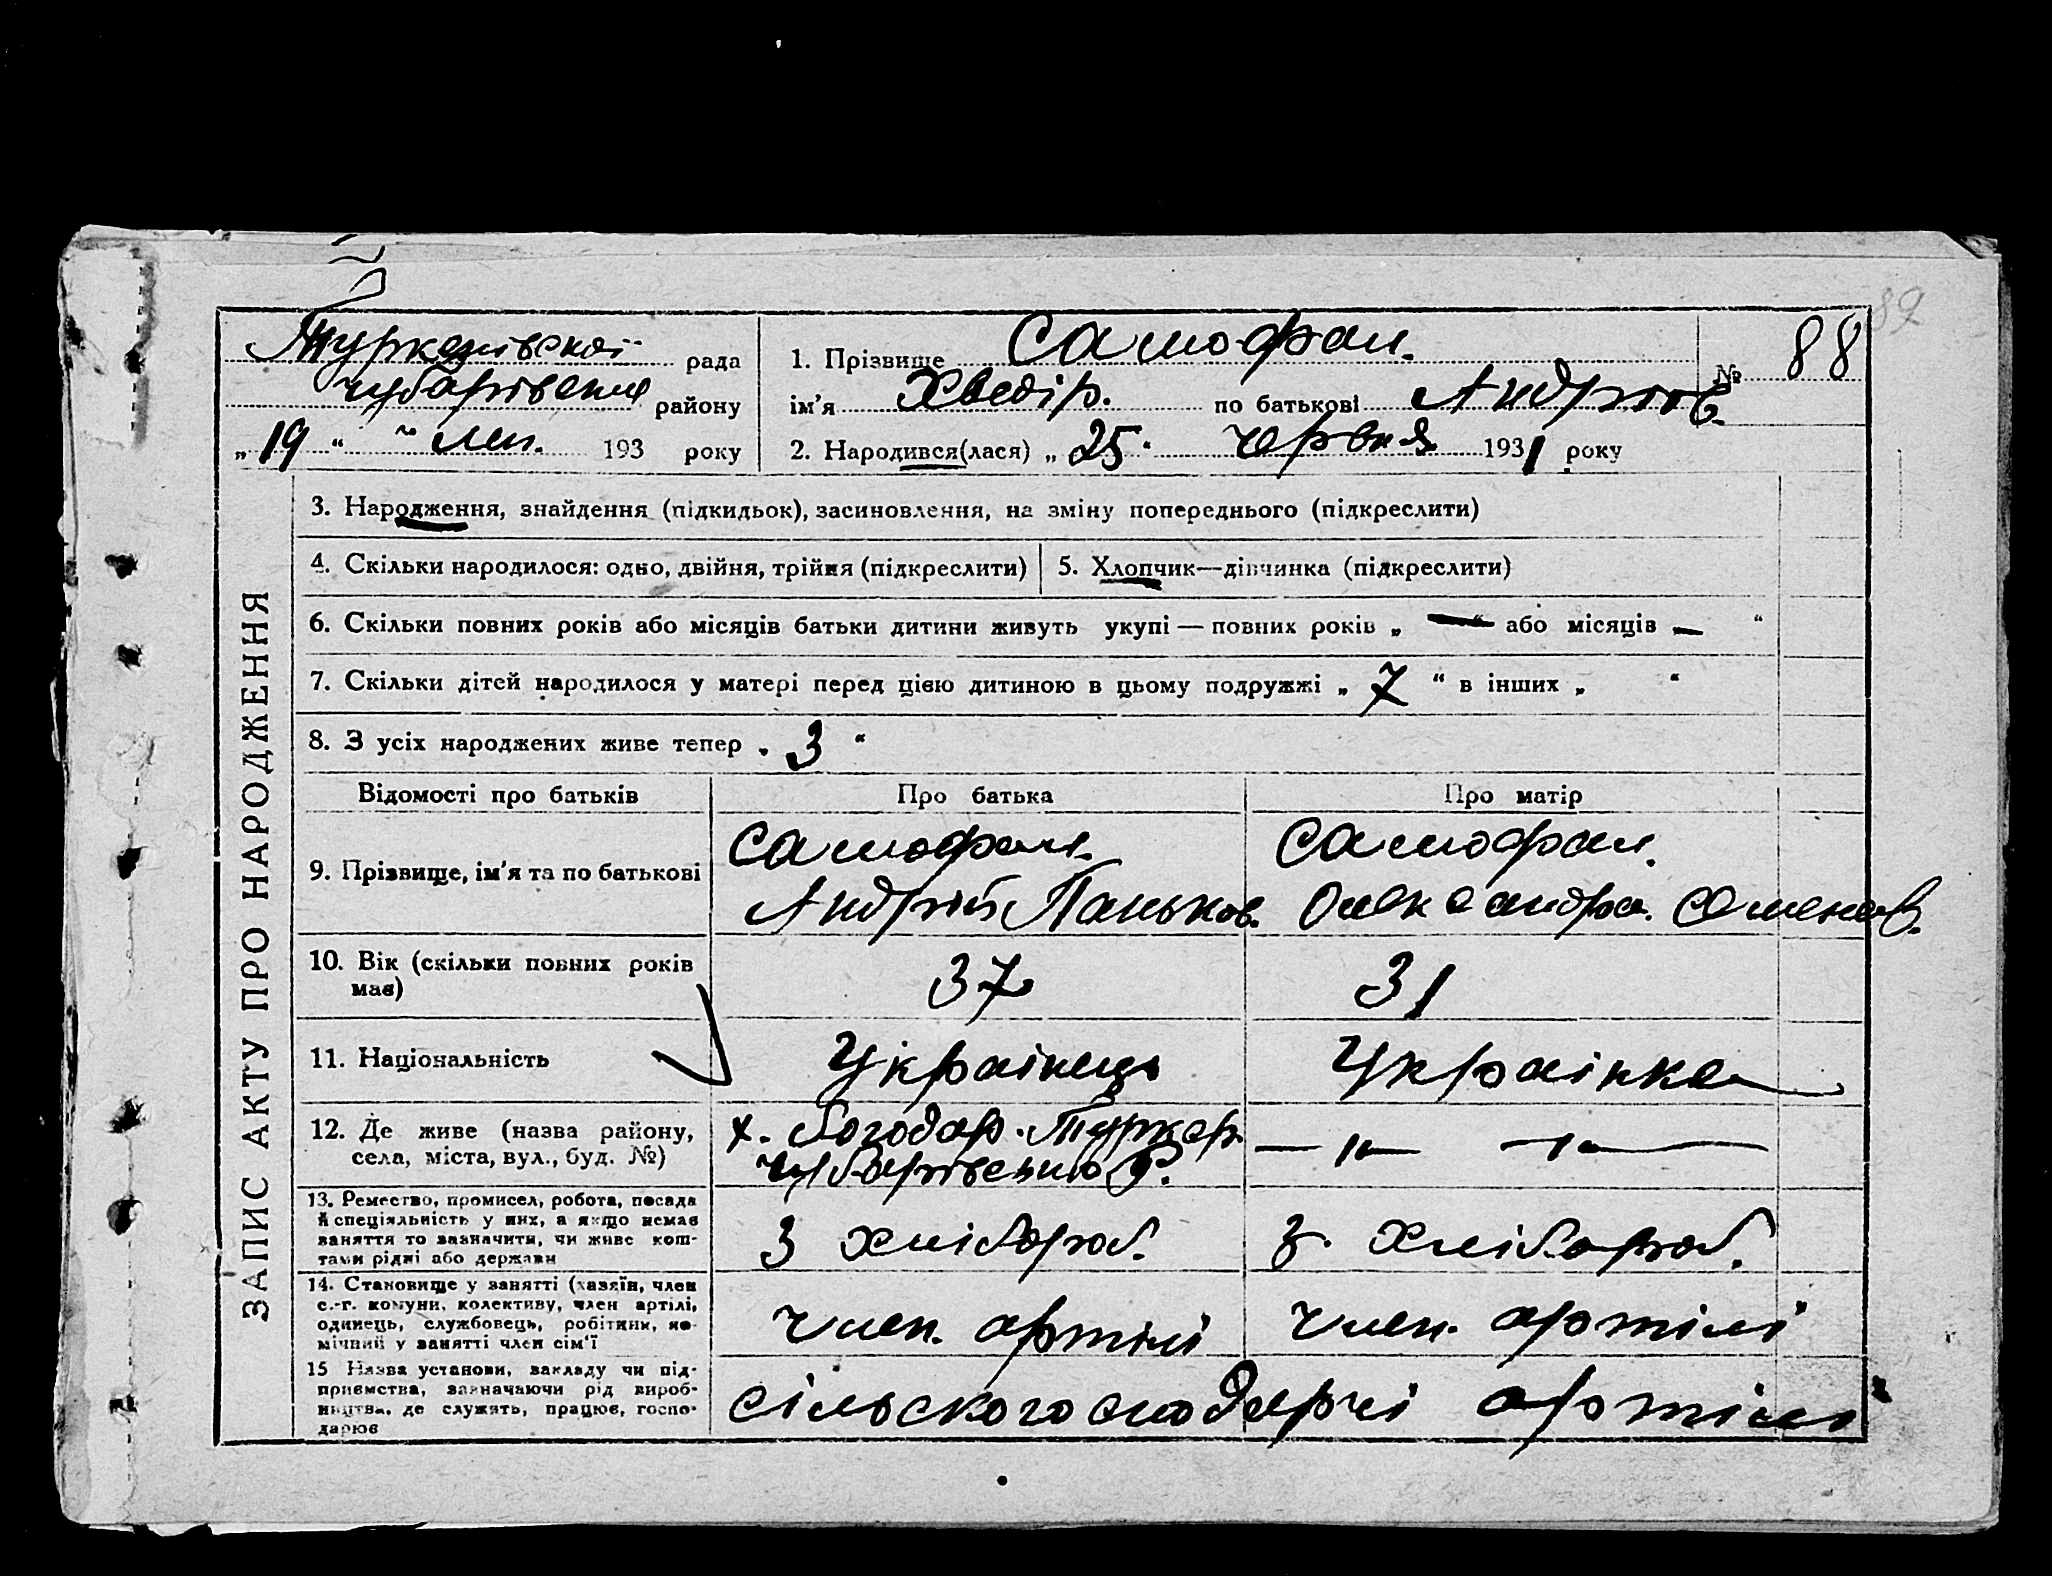 89
Туркенівської рада
Чубарівського району
„ 19 “ лип. 193 року
1. Прізвище Самофал. № 88
ім'я Хведір. по батькові Андріїв.
2. Народився(лася) „ 25 “ червня 1931 року
ЗАПИС АКТУ ПРО НАРОДЖЕННЯ
3. Народження, знайдення (підкидьок), засиновлення, на зміну попереднього (підкреслити)
4. Скільки народилося: одно, двійня, трійня (підкреслити) 5. Хлопчик—дівчинка (підкреслити)
6. Скільки повних років або місяців батьки дитини живуть укупі — повних років „ — “ або місяців — “
7. Скільки дітей народилося у матері перед цією дитиною в цьому подружжі „ 7 “ в інших „ “
8. З усіх народжених живе тепер „ 3 “
Відомості про батьків Про батька Про матір
9. Прізвище, ім'я та по батькові
Самофал. Андрій Паньков.
Самофал. Олександра. Семенов.
10. Вік (скільки повних років має) 37 31
11. Національність Українець Українка
12. Де живе (назва району, села, міста, вул., буд. №)
х. Богодар. Туркен.
Чубарівського Р.
— „ — — „ —
13. Ремество, промисел, робота, посада й спеціяльність у них, а якщо немає заняття то зазначити, чи живе коштами рідні або держави
З хлібороб. З. хлібороб.
14. Становище у занятті (хазяїн, член с.-г. комуни, колективу, член артілі, одинець, службовець, робітник, помічний у занятті член сім'ї
член. артілі член. артілі
15 Назва установи, закладу чи підприємства, зазначаючи рід виробництва, де служить, працює, господарює
сільськогосподарчі артілі